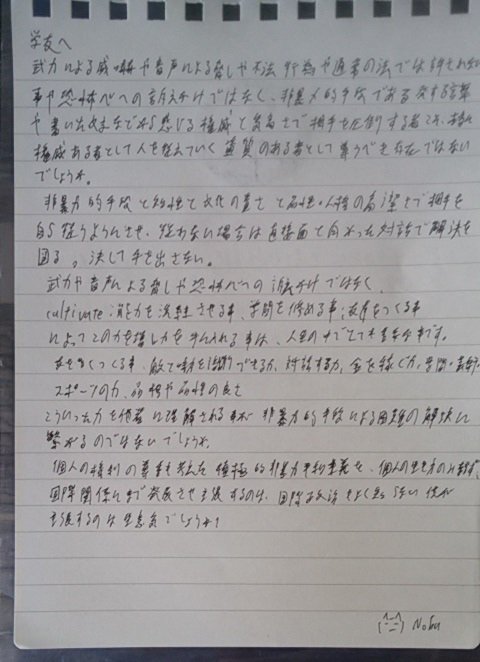 学友へ
武力による威嚇や音声による脅しや不法行為や通常の法では許されない
事や恐怖心への訴えかけではなく、非暴力的手段である発する言葉
や書いた文章などから感じる権威と気高さで相手を圧倒する者こそ、
権威ある者として人を従えていく資質のある者として尊うべき存在ではない
でしょうか。
非暴力的手段と知性と文化の豊さと品性・人格の高潔さで相手を
自ら従うようにさせ、従わない場合は直接面と向かった対話で解決を
図る。決して手を出さない。
武力や音声による脅しや恐怖心への訴えかけではなく、
cultivate:能力を活性させる事、学問を修める事;友好をつくる事
によってこの力を権力を手に入れる事は、人生の中でとても大事な事です。
友をつくる事、敵で味方を できるか、対話する力、金を稼ぐ力、学問・芸術・
スポーツの力、品格や品性の良さ
こういった力を他者に理解される事が非暴力的手段による問題の解決に
繋がるのではないでしょうか。
個人の権利の尊重を考えた積極的非暴力平和主義を、個人の生き方のみならず、
国際関係にまで発展させ主張するのは、国際政治をよく知らない僕が
主張するのは生意気でしょうか?
Nobu